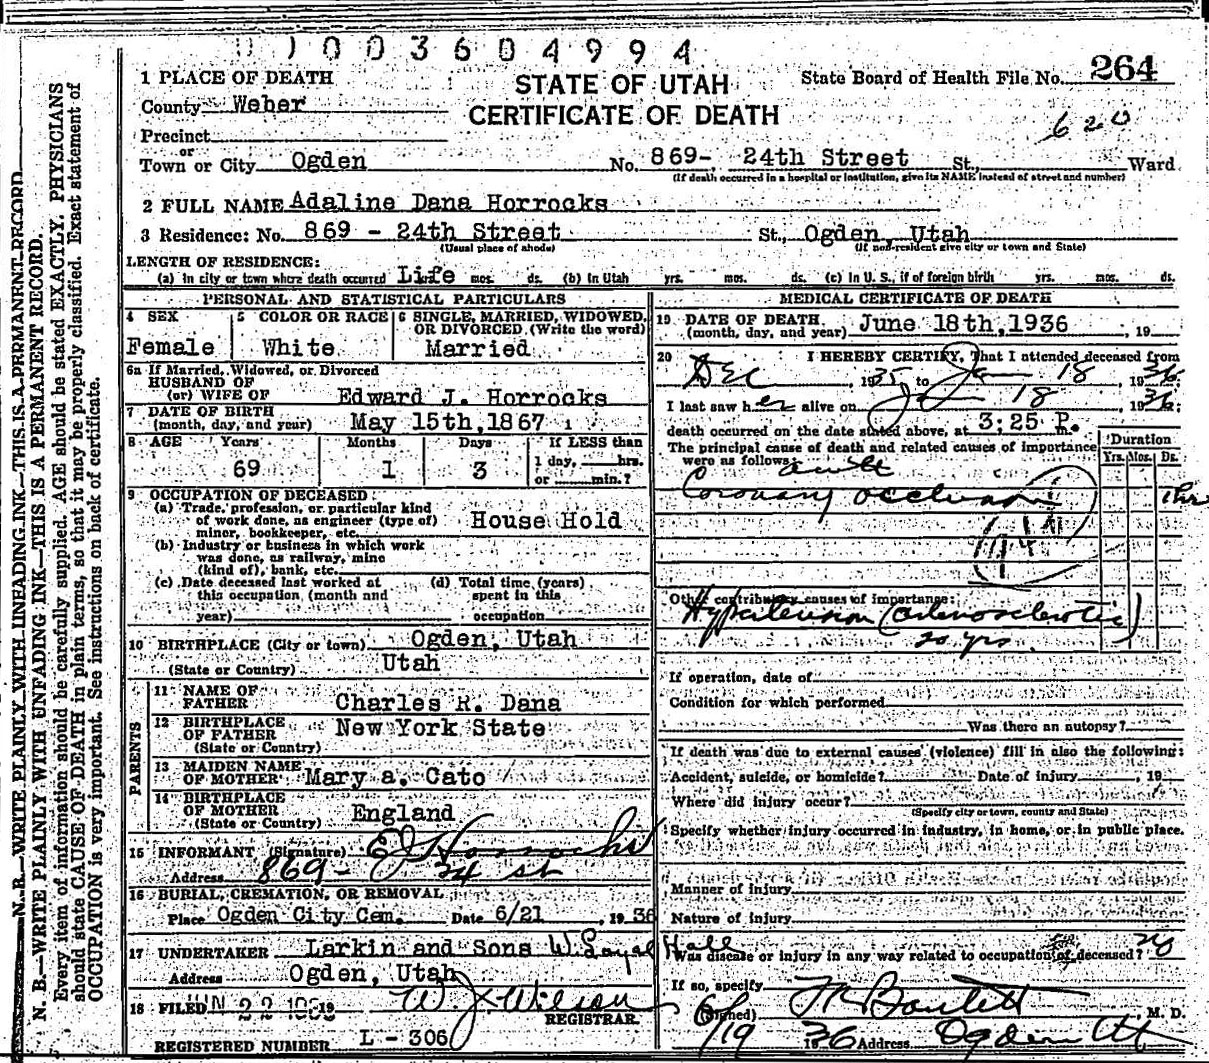 0 1 0 0 3 6 0 4 9 9 4
STATE OF UTAH
CERTIFICATE OF DEATH
State Board of Health File No. 264
620
1 PLACE OF DEATH
County Weber
Precinct
or
Town or City Ogden No. 869- 24th Street St., Ward
(If death occurred in a hospital or institution, give its NAME instead of street and number)
2 FULL NAME Adaline Dana Horrocks
3 Residence: No. 869 - 24th Street St., Ogden, Utah
(Usual place of abode) (If non-resident give city or town and State)
LENGTH OF RESIDENCE:
(a) in city or town where death occurred Life mos. ds. (b) In Utah yrs. mos. ds. (c) In U. S., if of foreign birth yrs. mos. ds.
PERSONAL AND STATISTICAL PARTICULARS
4 SEX
Female
5 COLOR OR RACE
White
6 SINGLE, MARRIED, WIDOWED, OR DIVORCED (Write the word)
Married
6a If Married, Widowed, or Divorced
HUSBAND OF
(or) WIFE OF Edward J. Horrocks
7 DATE OF BIRTH
(month, day, and year) May 15th, 1867
8 AGE Years Months Days If LESS than
69 1 3 1 day, hrs.
or min.?
9 OCCUPATION OF DECEASED:
(a) Trade, profession, or particular kind
of work done, as engineer (type of)
minor, bookkeeper, etc. House Hold
(b) Industry or business in which work
was done, as railway, mine
(kind of), bank, etc.
(c) Date deceased last worked at
this occupation (month and
year)
(d) Total time (years)
spent in this
occupation
10 BIRTHPLACE (City or town) Ogden, Utah
(State or Country) Utah
PARENTS
11 NAME OF
FATHER Charles R. Dana
12 BIRTHPLACE
OF FATHER New York State
(State or Country)
13 MAIDEN NAME
OF MOTHER Mary a. Cato
14 BIRTHPLACE
OF MOTHER England
(State or Country)
15 INFORMANT (Signature) E J Horrocks
Address 869- 24 St
16 BURIAL, CREMATION, OR REMOVAL
Place Ogden City Cem. Date 6/21, 1936
17 UNDERTAKER Larkin and Sons W. Loyal Hall
Address Ogden, Utah
18 FILED JUN 22 19 W. J. Wilson
REGISTRAR.
REGISTERED NUMBER L - 306
MEDICAL CERTIFICATE OF DEATH
19 DATE OF DEATH
(month, day, and year) June 18th, 1936, 19
20 I HEREBY CERTIFY, That I attended deceased from
Dec, 1935, to 18, 1936;
I last saw her alive on 18, 1936;
death occurred on the date stated above, at 3:25 P. m.
The principal cause of death and related causes of importance
were as follows: acute
Coronary occlusion
Duration
Yrs. Mos. Ds.
1 hr
Other contributory causes of importance:
Hypertension (arteriosclerotic)
20 yrs.
If operation, date of
Condition for which performed
Was there an autopsy?
If death was due to external causes (violence) fill in also the following:
Accident, suicide, or homicide? Date of injury, 19
Where did injury occur?
(Specify city or town, county and State)
Specify whether injury occurred in industry, in home, or in public place.
Manner of injury
Nature of injury
Was disease or injury in any way related to occupation of deceased? no
If so, specify
(Signed) Bartlett, M. D.
6/19 1936 Address Ogden Ut
N. B.—WRITE PLAINLY WITH UNFADING INK—THIS IS A PERMANENT RECORD
N. B.—WRITE PLAINLY WITH UNFADING INK—THIS IS A PERMANENT RECORD.
Every item of information should be carefully supplied. AGE should be stated EXACTLY. PHYSICIANS
should state CAUSE OF DEATH in plain terms, so that it may be properly classified. Exact statement of
OCCUPATION is very important. See instructions on back of certificate.